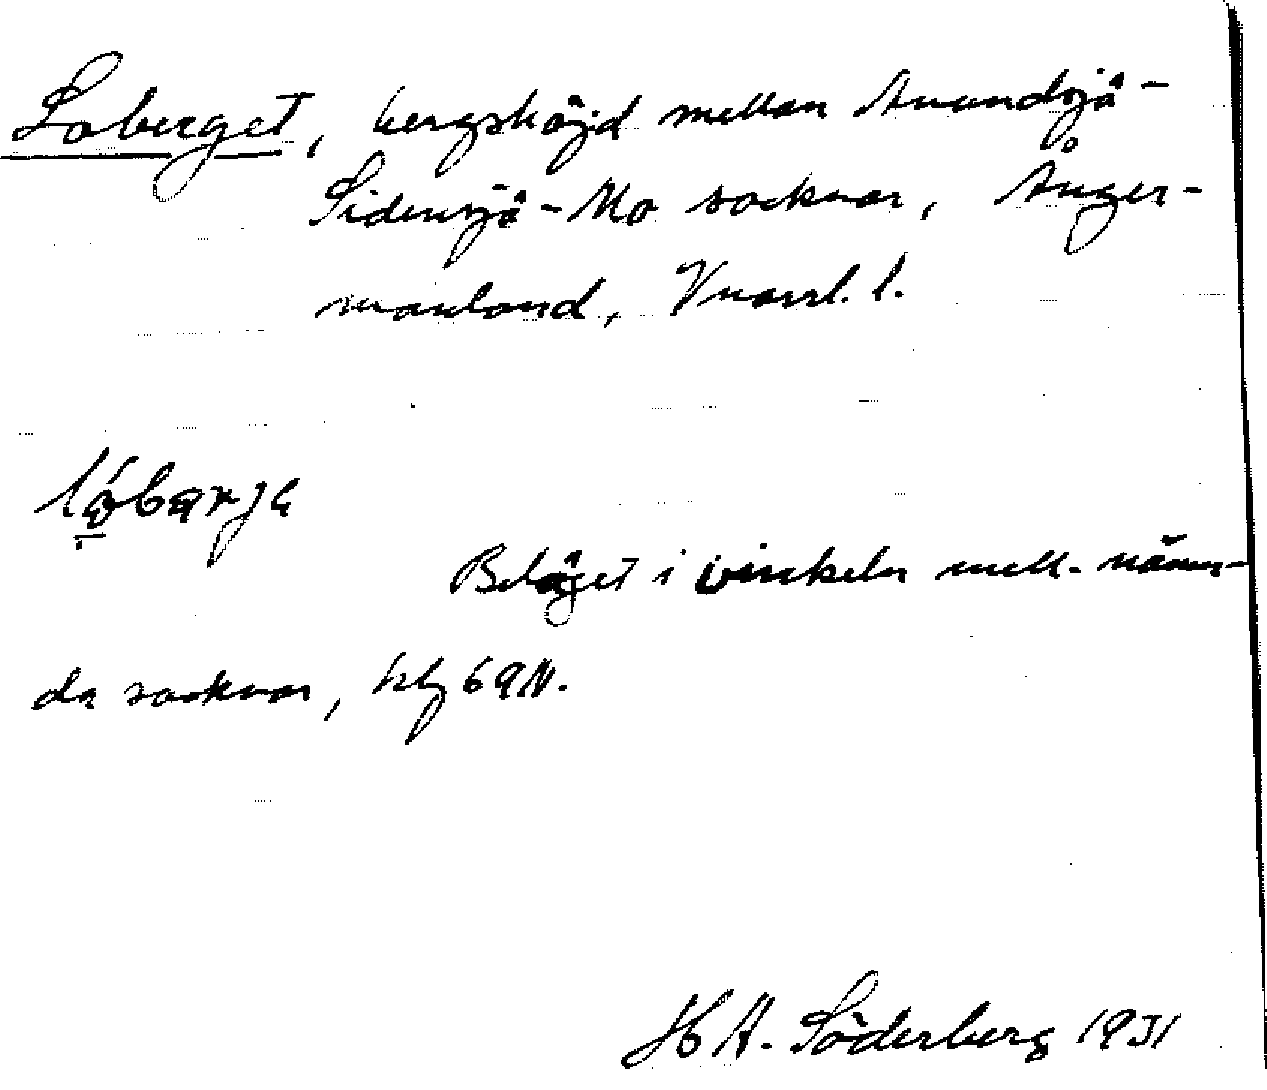 Loberget, bergshöjd mellan Anundsjö-
Sidensjö-Mo socknar, Ånger-
manland, Vnorrl. l.
Beläget i vinkeln mell. nämn-
da socknar, kbl 69N.
H A. Söderberg 1931